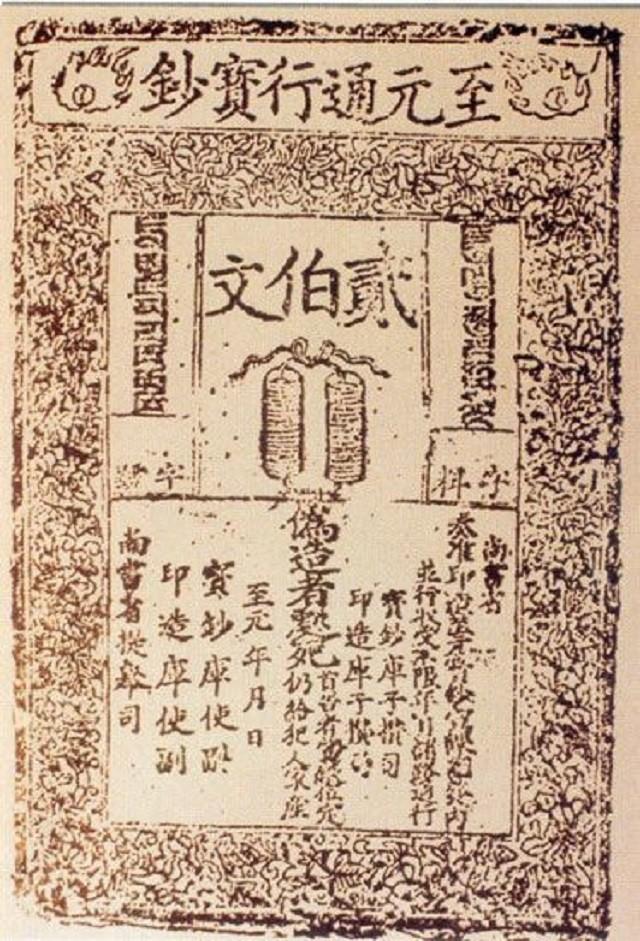 至元通行寳鈔
貳伯文
字料
字號
尚書省
奏准印造至元寳鈔宣課差役內
並行收受不限年月諸路通行
寳鈔庫子攢司
印造庫子攢司
偽造者處死
首告者賞銀伍定
仍給犯人家産
至元年月日
寳鈔庫使副
印造庫使副
尚書省提舉司